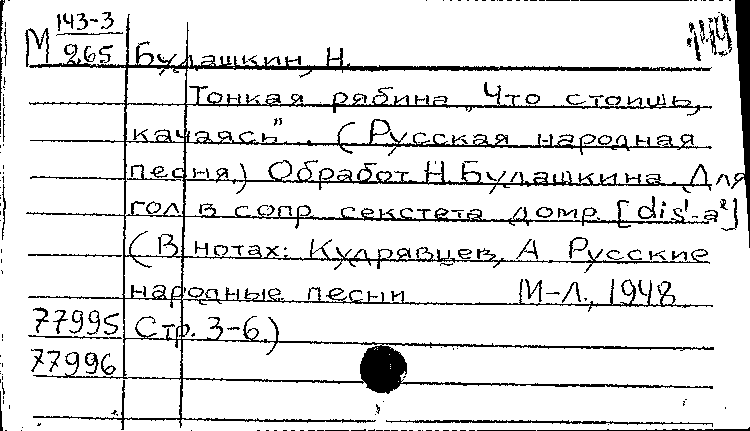 М 143-3
265
149
Булашкин, Н.
Тонкая рябина „Что стоишь,
качаясь". (Русская народная
песня.) Обработ. Н. Булашкина. Для
гол. в сопр. секстета домр. [dis¹-a²]
(В нотах: Кудрявцев, А. Русские
народные песни М-Л., 1948
77995 Стр. 3-6.)
77996